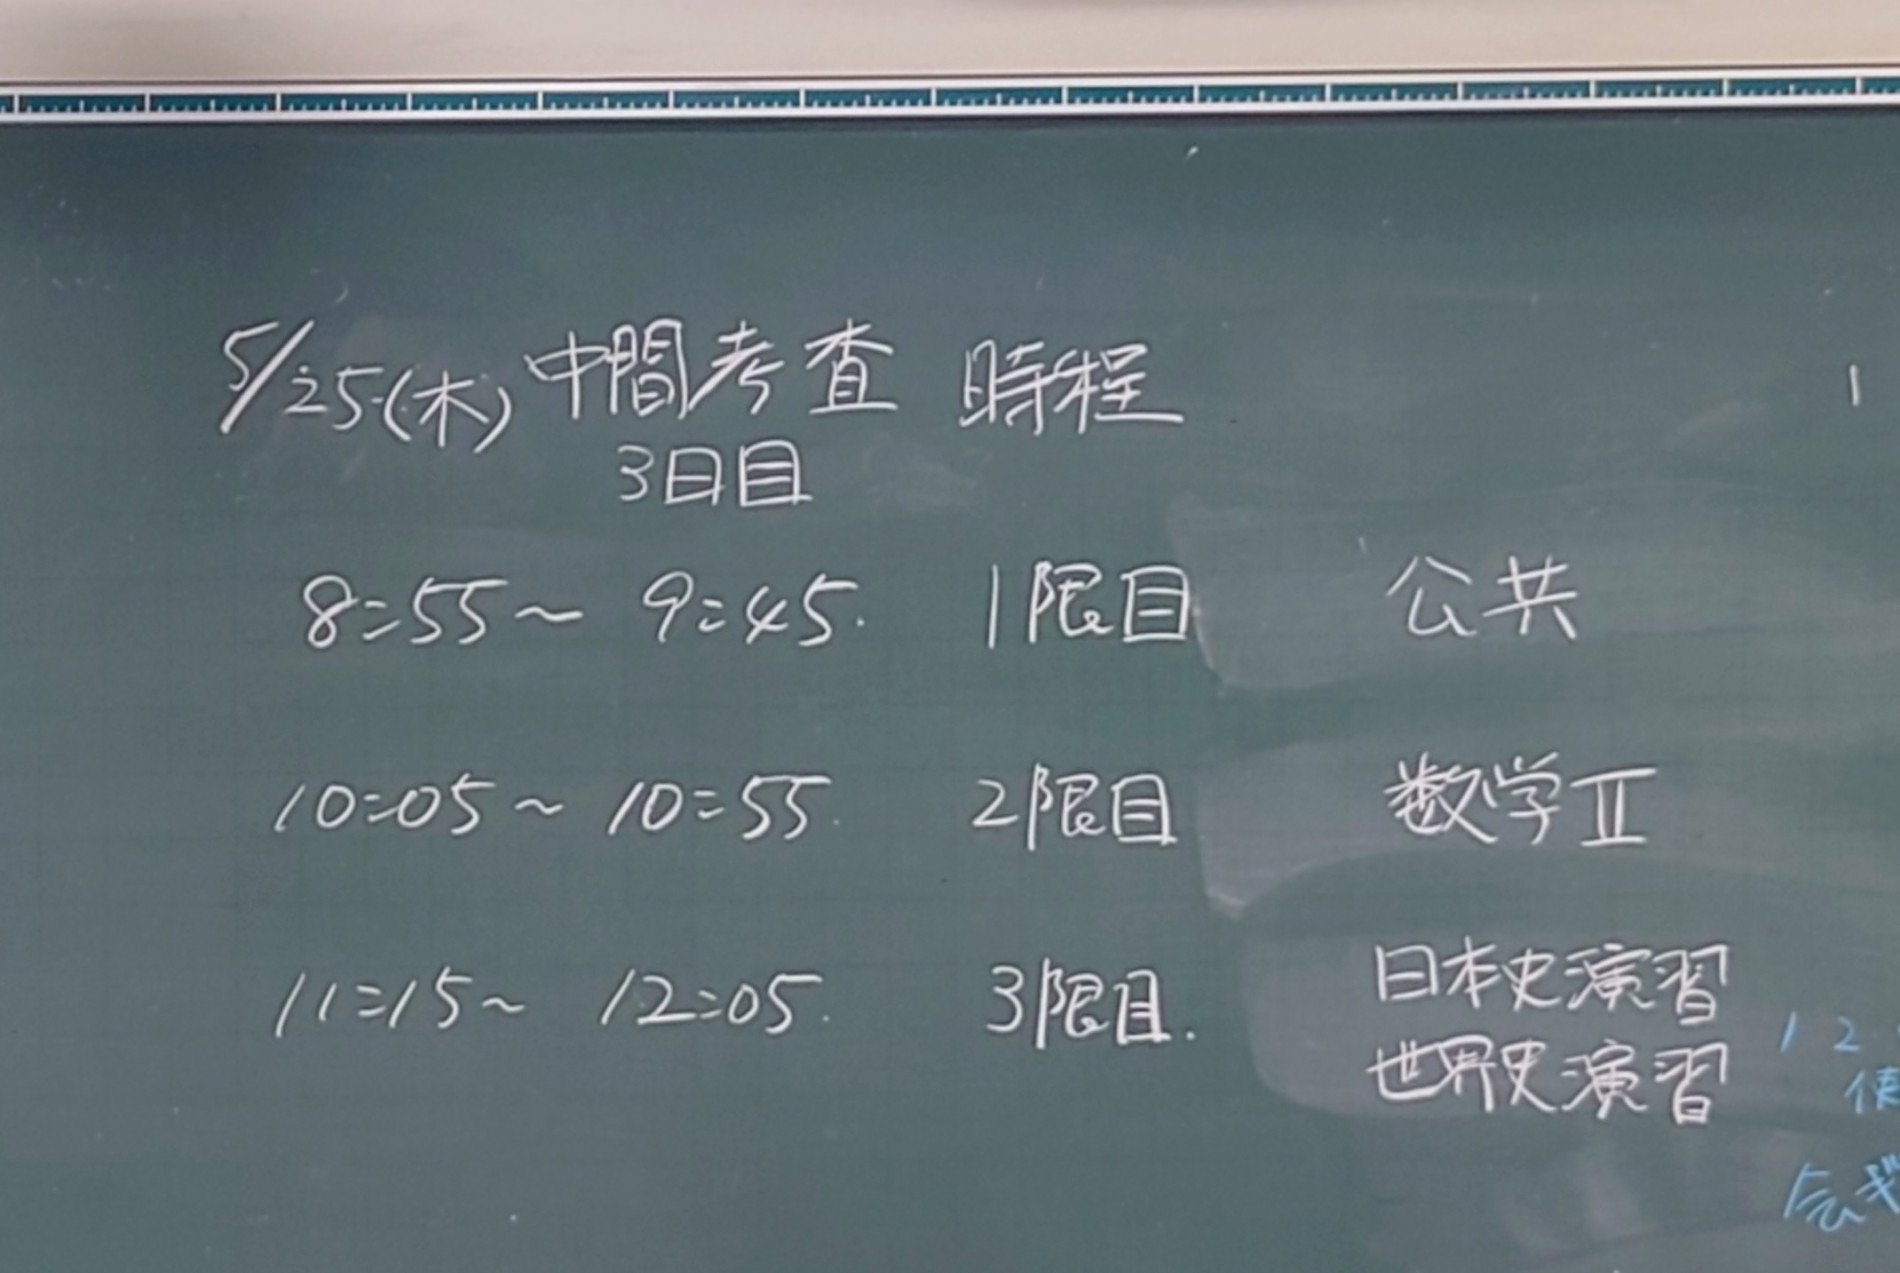 5/25(木) 中間考査 時程
3日目
8:55～ 9:45 1限目 公共
10:05～ 10:55 2限目 数学Ⅱ
11:15～ 12:05 3限目 日本史演習
世界史演習
1 2